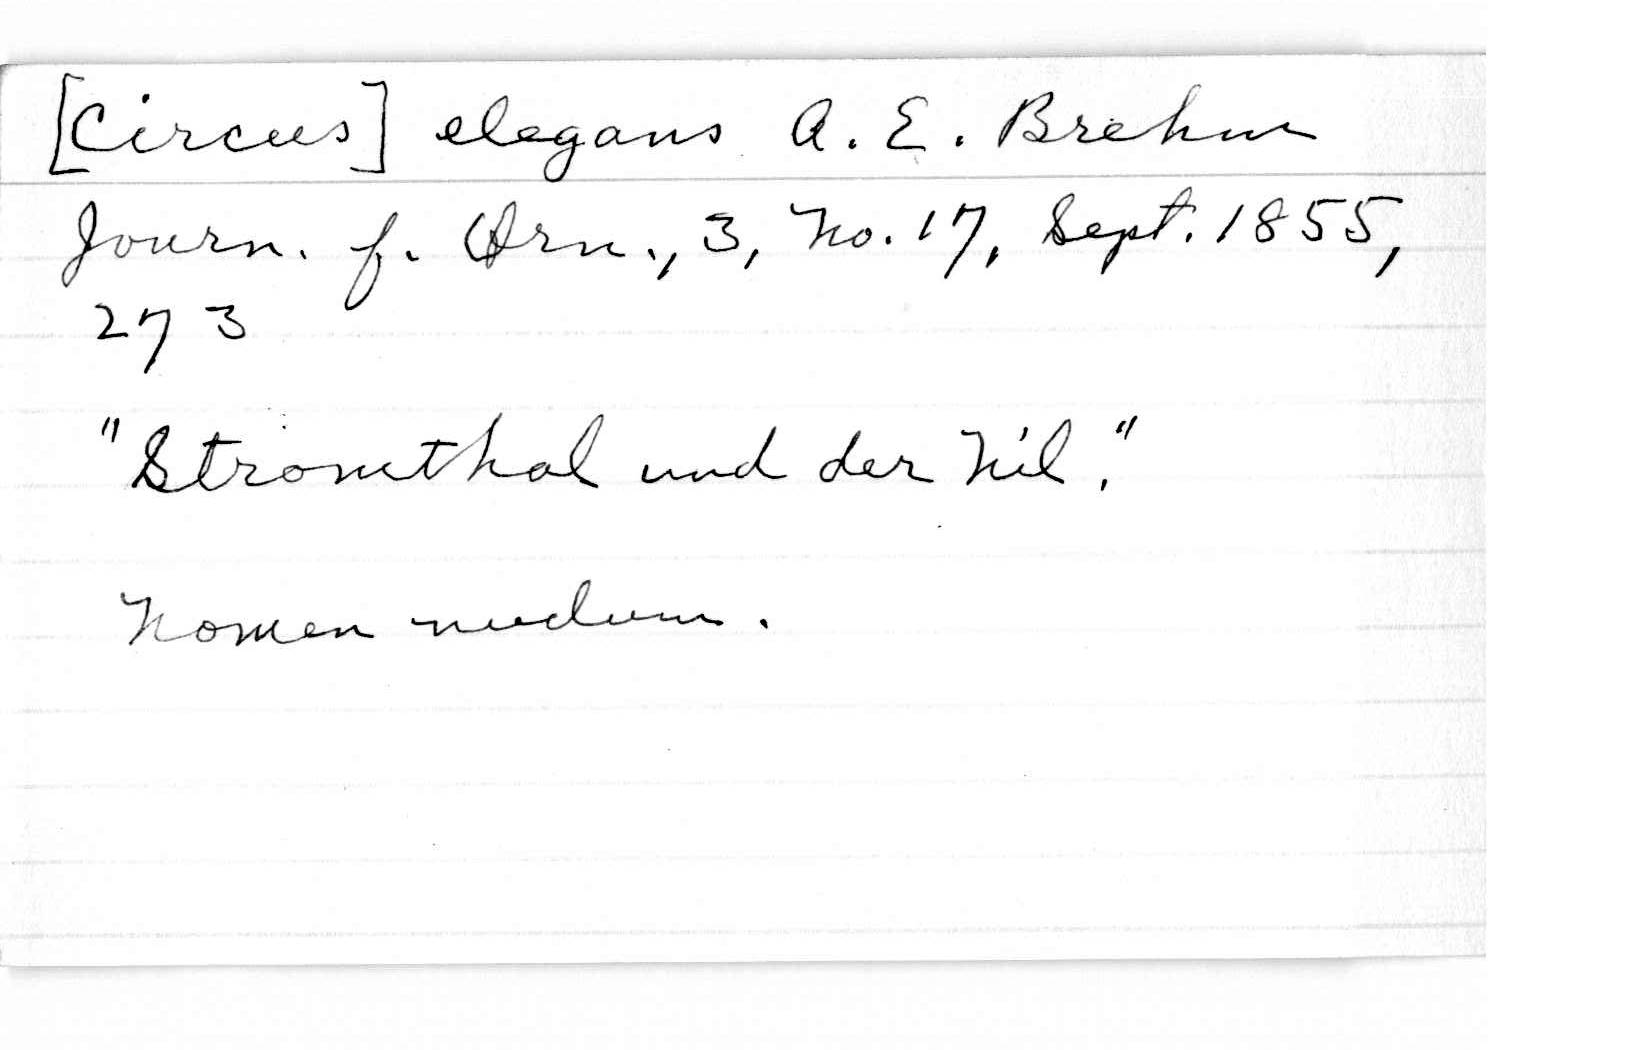 [Circus] elegans A. E. Brehm
Journ. f. Orn., 3, No. 17, Sept. 1855,
273
"Stromthal und der Nil,"
Nomen nudum.